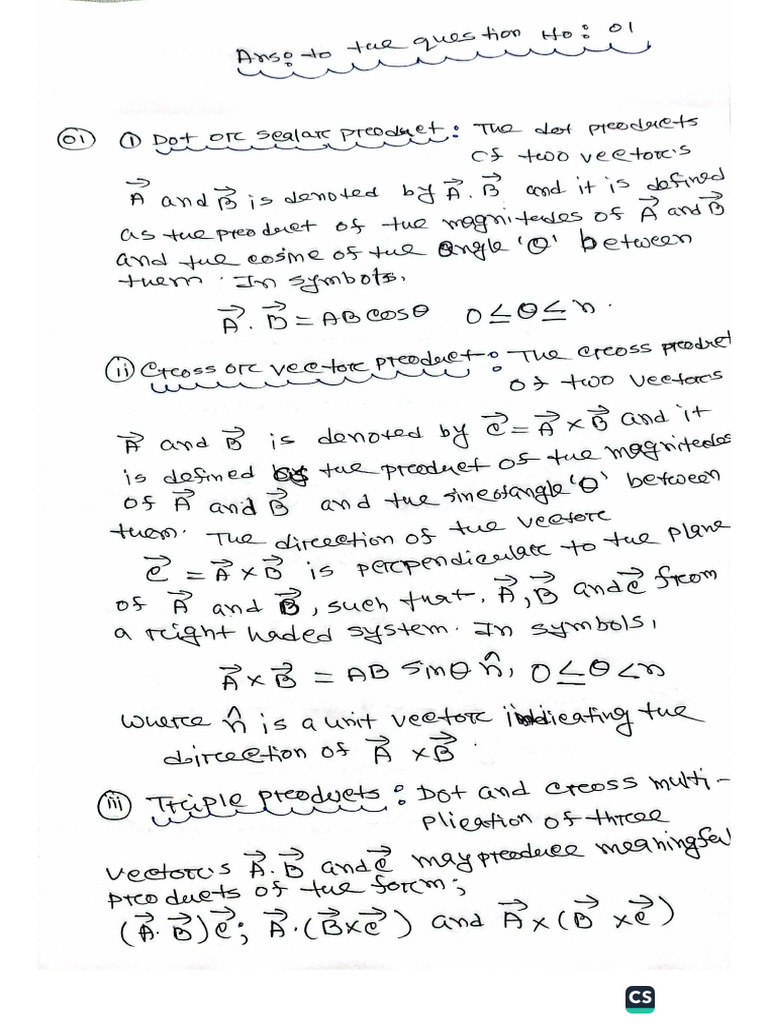 Ans: to the question No: 01
01 i Dot or scalar product: The dot products
of two vector's
A⃗ and B⃗ is denoted by A⃗ . B⃗ and it is defined
as the product of the magnitudes of A⃗ and B⃗
and the cosine of the angle 'θ' between
them. In symbols,
A⃗ . B⃗ = AB cosθ 0 ≤ θ ≤ π .
ii Cross or vector product: The cross product
of two vectors
A⃗ and B⃗ is denoted by C⃗ = A⃗ × B⃗ and it
is defined as the product of the magnitudes
of A⃗ and B⃗ and the sine of angle 'θ' between
them. The direction of the vector
C⃗ = A⃗ × B⃗ is perpendicular to the plane
of A⃗ and B⃗, such that, A⃗, B⃗ and C⃗ from
a right haded system. In symbols,
A⃗ × B⃗ = AB sinθ n̂, 0 ≤ θ < π
where n̂ is a unit vector indicating the
direction of A⃗ × B⃗ .
iii Triple products: Dot and cross multi-
plication of three
vectors A⃗. B⃗ and C⃗ may produce meaningful
products of the form;
(A⃗. B⃗) C⃗; A⃗. (B⃗ × C⃗) and A⃗ × (B⃗ × C⃗)
CS